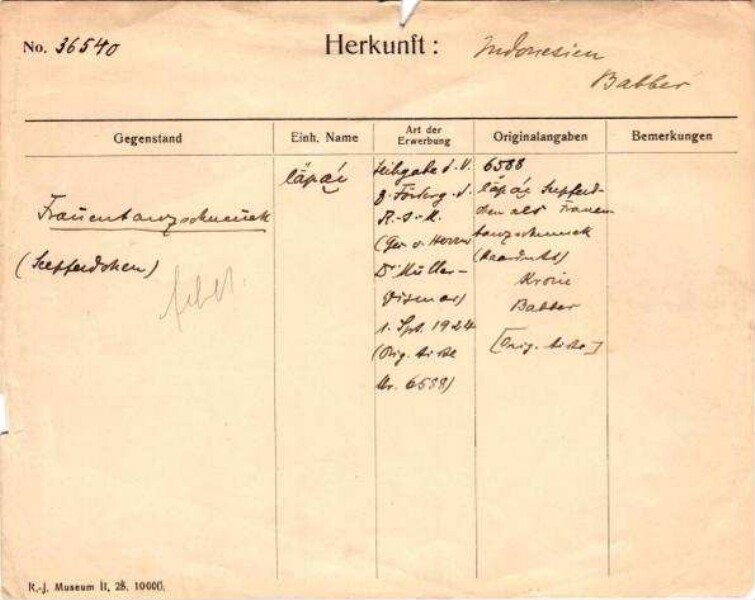 No. 36540
Herkunft: Indonesien
Babber
Gegenstand
Einh. Name
Art der Erwerbung
Originalangaben
Bemerkungen
Frauentanzschmuck
(Seepferdchen)
fehlt
läpái
Leihgabe d. V.
z. Förderg. d.
R.-J.-M.
(Ges. v. Herrn
Dr Müller-
Wismar)
1. Spt. 1924
(Orig. Liste
Nr. 6588)
6588
läpái Seepferd-
chen als Frauen
tanzschmuck
Kroin
Babber
[Orig. Liste]
R.-J. Museum II, 28. 10000.